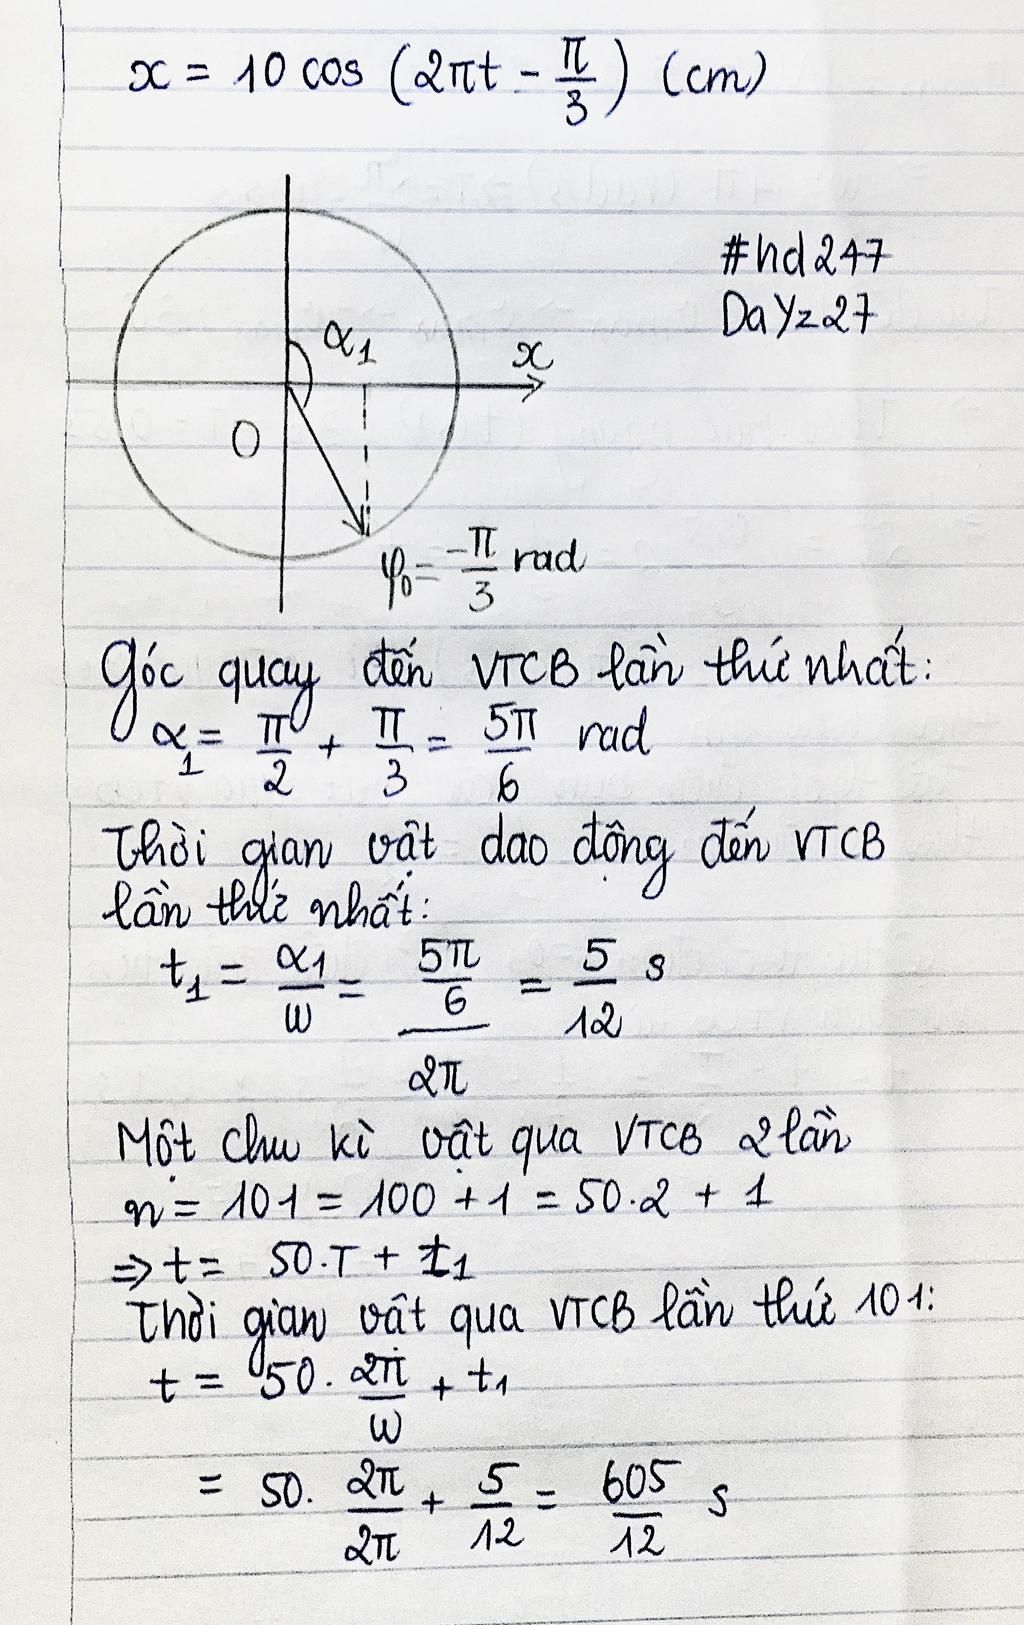 x = 10 cos (2πt - π/3) (cm)
#hd247
DaYz27
α₁
x
O
φ₀ = -π/3 rad
Góc quay đến VTCB lần thứ nhất:
α₁ = π/2 + π/3 = 5π/6 rad
Thời gian vật dao động đến VTCB
lần thứ nhất:
t₁ = α₁/ω = (5π/6)/2π = 5/12 s
Một chu kì vật qua VTCB 2 lần
n = 101 = 100 + 1 = 50.2 + 1
=> t = 50.T + t₁
Thời gian vật qua VTCB lần thứ 101:
t = 50. 2π/ω + t₁
= 50. 2π/2π + 5/12 = 605/12 s